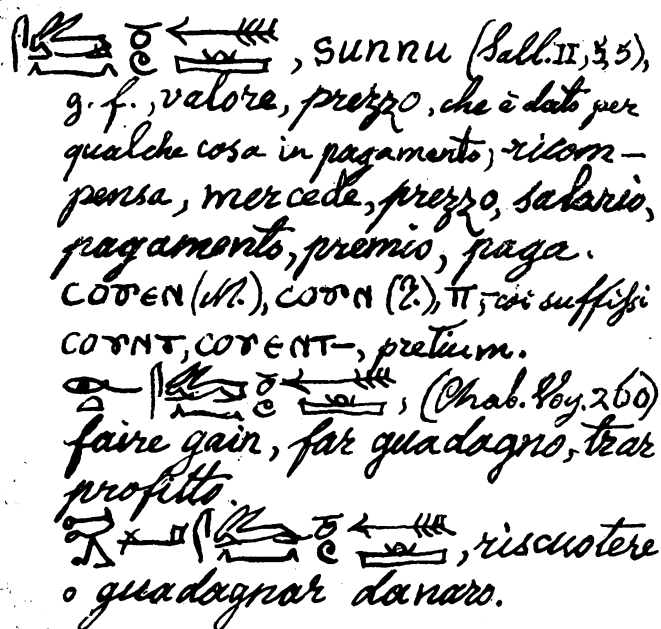 , sunnu (Sall. II, 5, 5),
g. f., valore, prezzo, che è dato per
qualche cosa in pagamento; ricom-
pensa, mercede, prezzo, salario,
pagamento, premio, paga.
ⲥⲟⲩⲉⲛ (M.), ⲥⲟⲩⲛ (?.), ⲡ; coi suffissi
ⲥⲟⲩⲛⲧ, ⲥⲟⲩⲉⲛⲧ-, pretium.
, (Chab. Voy. 260)
faire gain, far guadagno, trar
profitto.
, riscuotere
o guadagnar danaro.